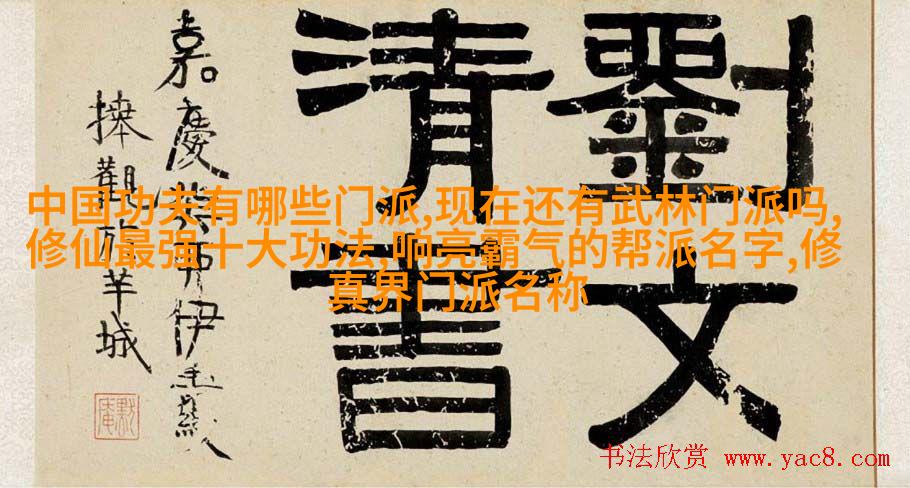 劉文
清書
嘉慶伊秉綬
捧觀於羊城
默庵
中国功夫有哪些门派,现在还有武林门派吗,
修仙最强十大功法,响亮霸气的帮派名字,修
真界门派名称
书法欣赏 www.yac8.com